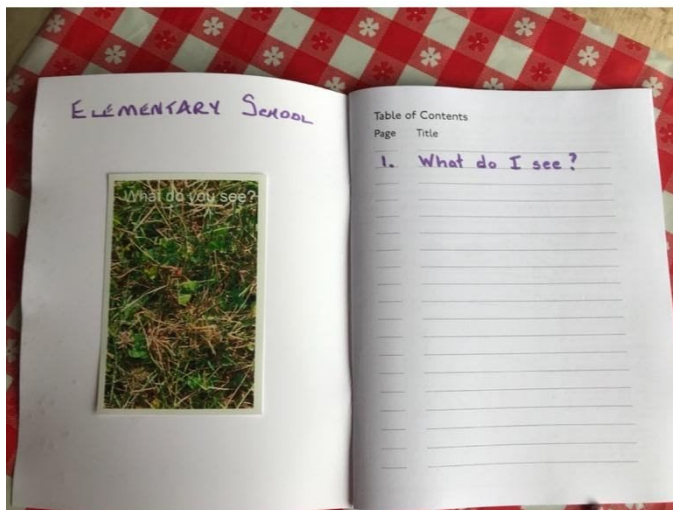 ELEMENTARY SCHOOL
What do you see?
Table of Contents
Page Title
1. What do I see?